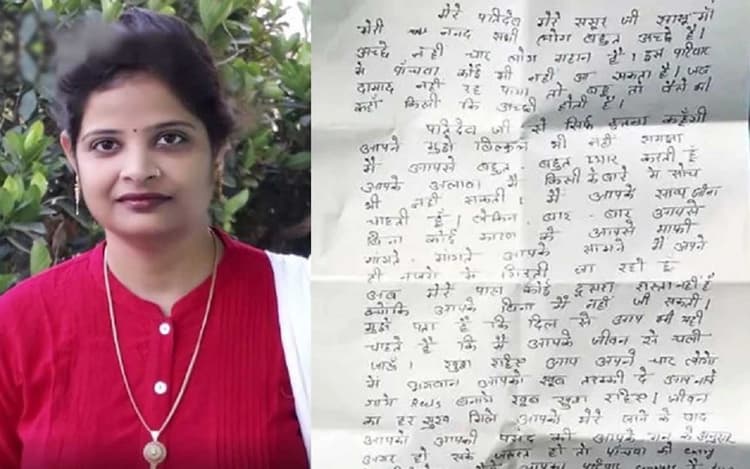 मेरे पतिदेव मेरे ससुर जी सासू माँ
मेरी ननद सभी लोग बहुत अच्छे हैं।
अच्छे नहीं चार लोग महान हैं। इस परिवार
में पाँचवा कोई भी नहीं आ सकता है। जब
दामाद नहीं रह पाया तो बहू तो वैसे भी
कहाँ किसी कि अच्छी होती है।
पतिदेव जी से सिर्फ इतना कहूँगी
आपने मुझे बिल्कुल भी नहीं समझा
मैं आपसे बहुत बहुत प्यार करती हूँ
आपके अलावा मैं किसी के बारे में सोच
भी नहीं सकती। मैं आपके साथ जीना
चाहती हूँ। लेकिन बार-बार आपसे
बिना कोई कारण के आपसे माफी
मांगते-मांगते आपके सामने मैं अपने
ही नजरों के गिरती जा रही हूँ
अब मेरे पास कोई दूसरा रास्ता नहीं है
क्योंकि आपके बिना मैं नहीं जी सकती।
मुझे पता है कि दिल से आप भी यही
चाहते हैं कि मैं आपके जीवन से चली
जाऊँ। खुश रहिए आप अपने चार लोगों
में भगवान आपको खूब तरक्की दे आप
गाये बनाये खूब खुश रहिए। जीवन
का हर सुख मिले आपको मेरे जाने के बाद
आपको आपकी पसंद की आपके मन के अनुसार
अगर हो सके जरूरत हो तो पाँचवा को
आपका परिवार